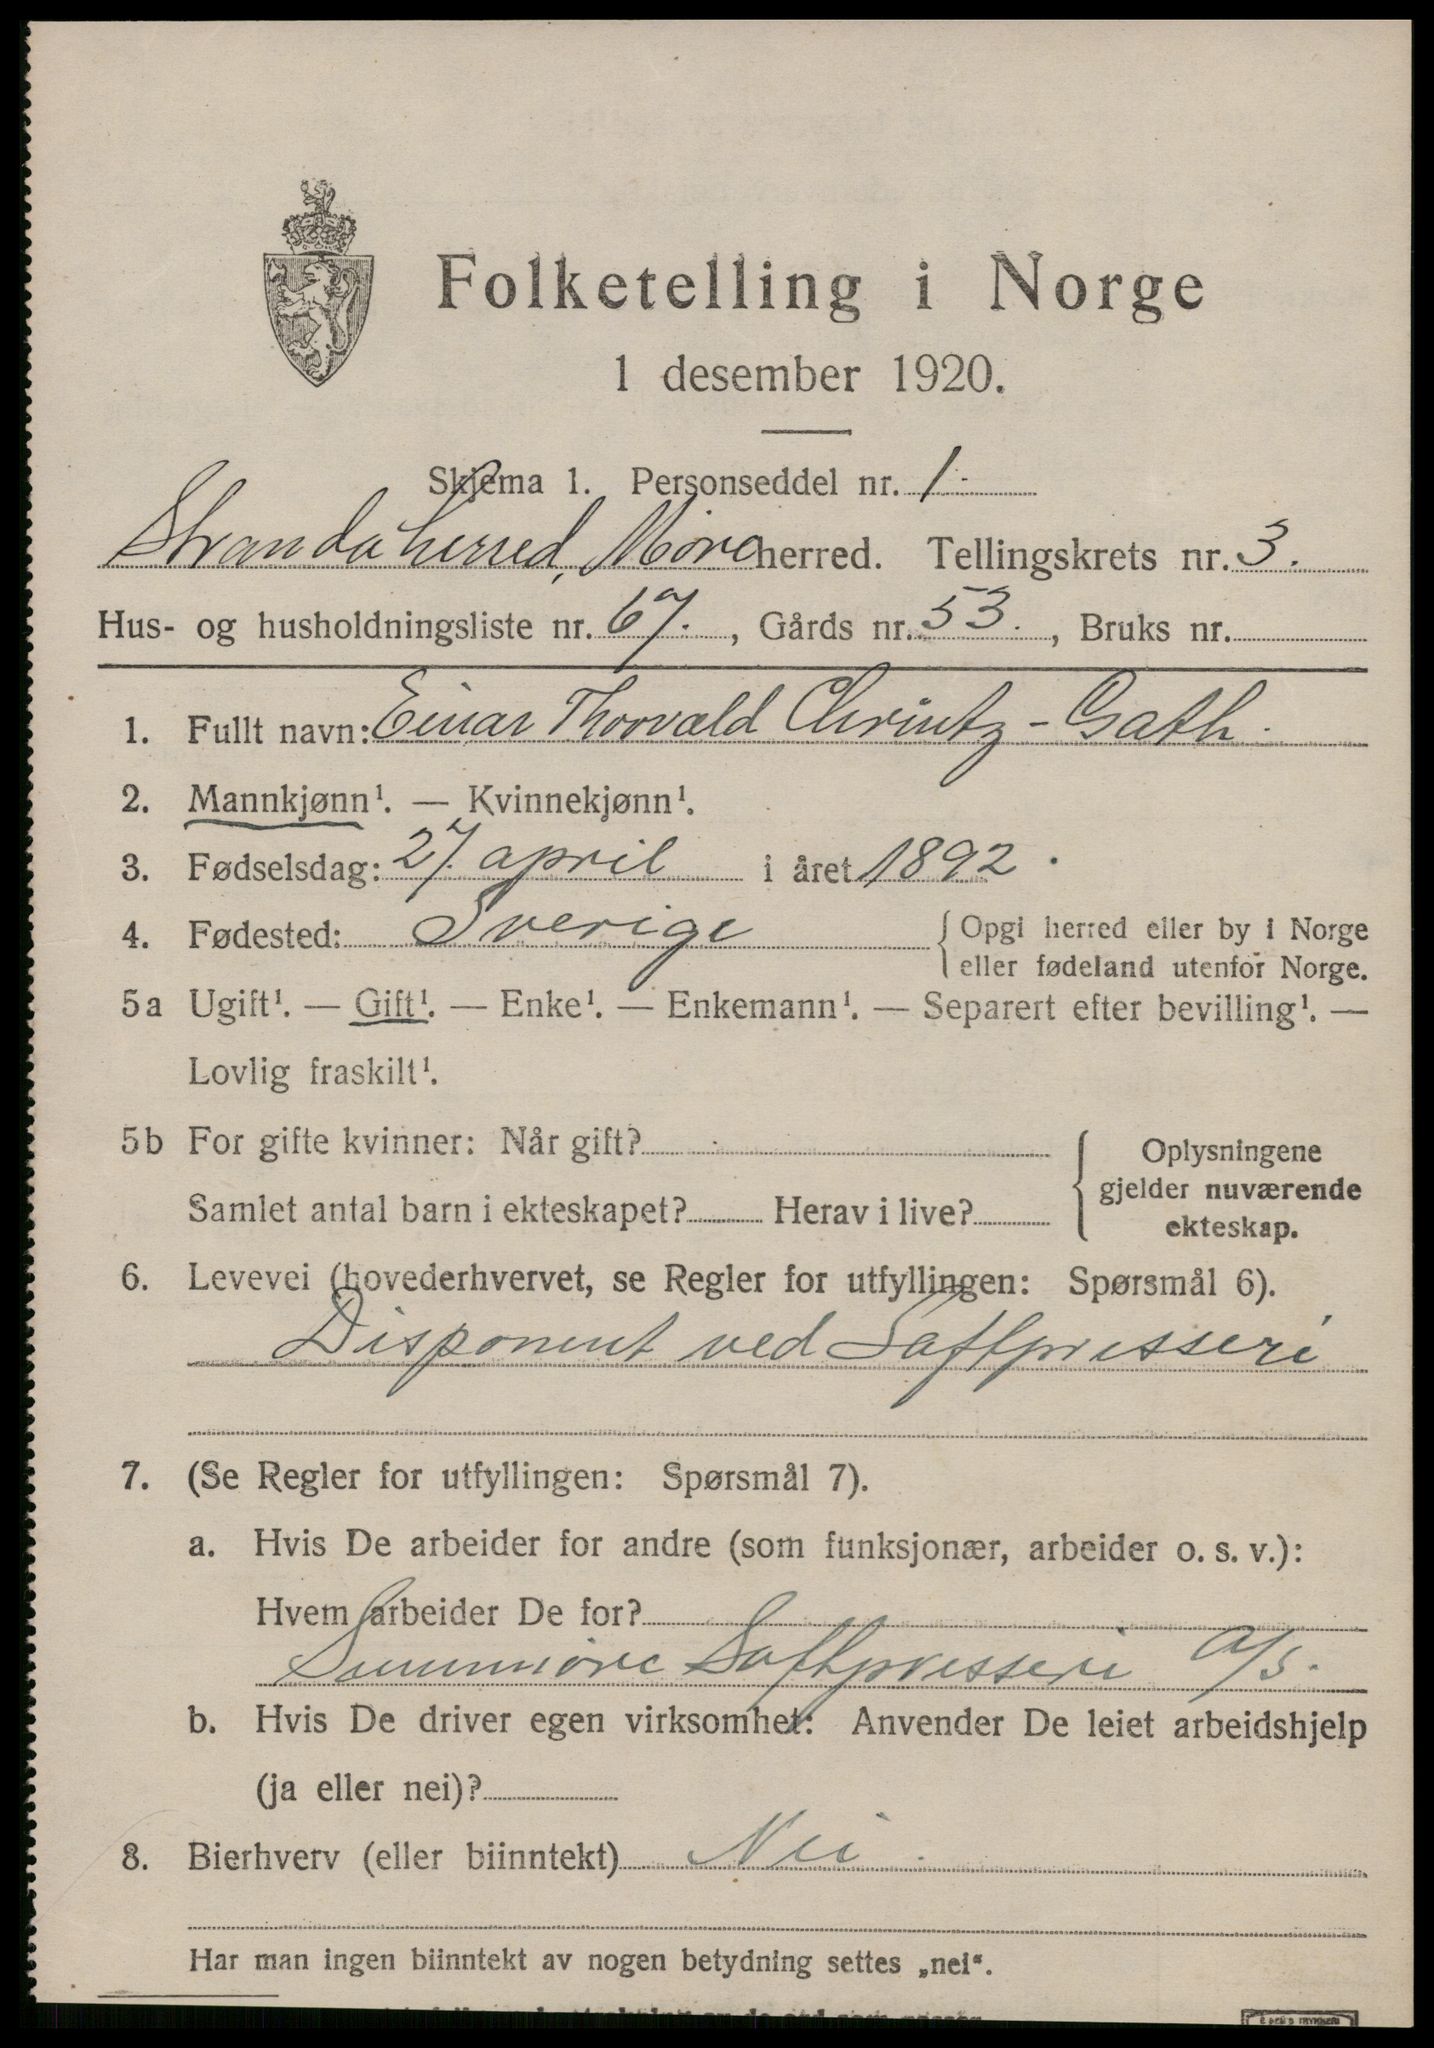 Folketelling i Norge
1 desember 1920.
Skjema 1. Personseddel nr. 1.
Stranda herred, Møre herred. Tellingskrets nr. 3.
Hus- og husholdningsliste nr. 67., Gårds nr. 53., Bruks nr.
1. Fullt navn: Einar Thorvald Chrintz-Gath.
2. Mannkjønn¹. — Kvinnekjønn¹.
3. Fødselsdag: 27. april i året 1892.
4. Fødested: Sverige { Opgi herred eller by i Norge
eller fødeland utenfor Norge.
5a Ugift¹. — Gift¹. — Enke¹. — Enkemann¹. — Separert efter bevilling¹. —
Lovlig fraskilt¹.
5b For gifte kvinner: Når gift?
Samlet antal barn i ekteskapet? Herav i live?
{ Oplysningene
gjelder nuværende
ekteskap.
6. Levevei (hovederhvervet, se Regler for utfyllingen: Spørsmål 6).
Disponent ved Saftpresseri
7. (Se Regler for utfyllingen: Spørsmål 7).
a. Hvis De arbeider for andre (som funksjonær, arbeider o. s. v.):
Hvem arbeider De for?
Sunnmøre Saftpresseri A/S.
b. Hvis De driver egen virksomhet: Anvender De leiet arbeidshjelp
(ja eller nei)?
8. Bierhverv (eller biinntekt) Nei.
Har man ingen biinntekt av nogen betydning settes „nei“.